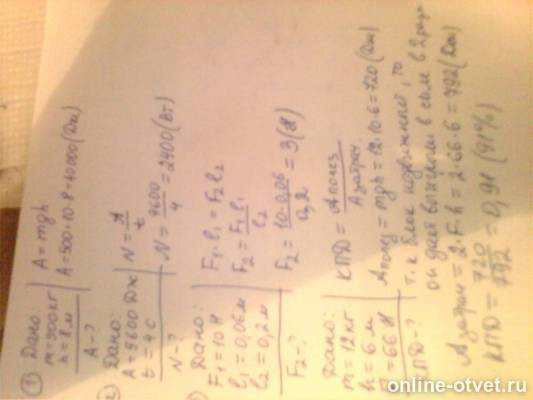 ① Дано:
m=500кг
h=8м
A-?
A=mgh
A=500·10·8=40000(Дж)
2 Дано:
A=9600 Дж
t=4с
N-?
N=A/t
N=9600/4=2400(Вт)
Дано:
F₁=10Н
l₁=0,06м
l₂=0,2м
F₂-?
F₁·l₁=F₂l₂
F₂=F₁l₁/l₂
F₂=10·0,06/0,2=3(Н)
Дано:
m=12кг
h=6м
F=66Н
КПД-?
КПД=Aполез/Aзатрач.
Aполез=mgh=12·10·6=720(Дж)
т.к блок подвижный, то
он дает выигрыш в силе в 2 раза
Aзатрач=2·F·h=2·66·6=792(Дж)
КПД=720/792=0,91 (91%)
online-otvet.ru